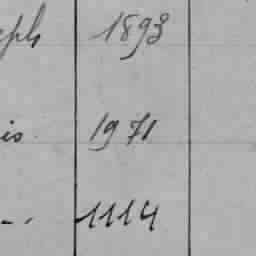 eph 1893
is 1971
-. 1114